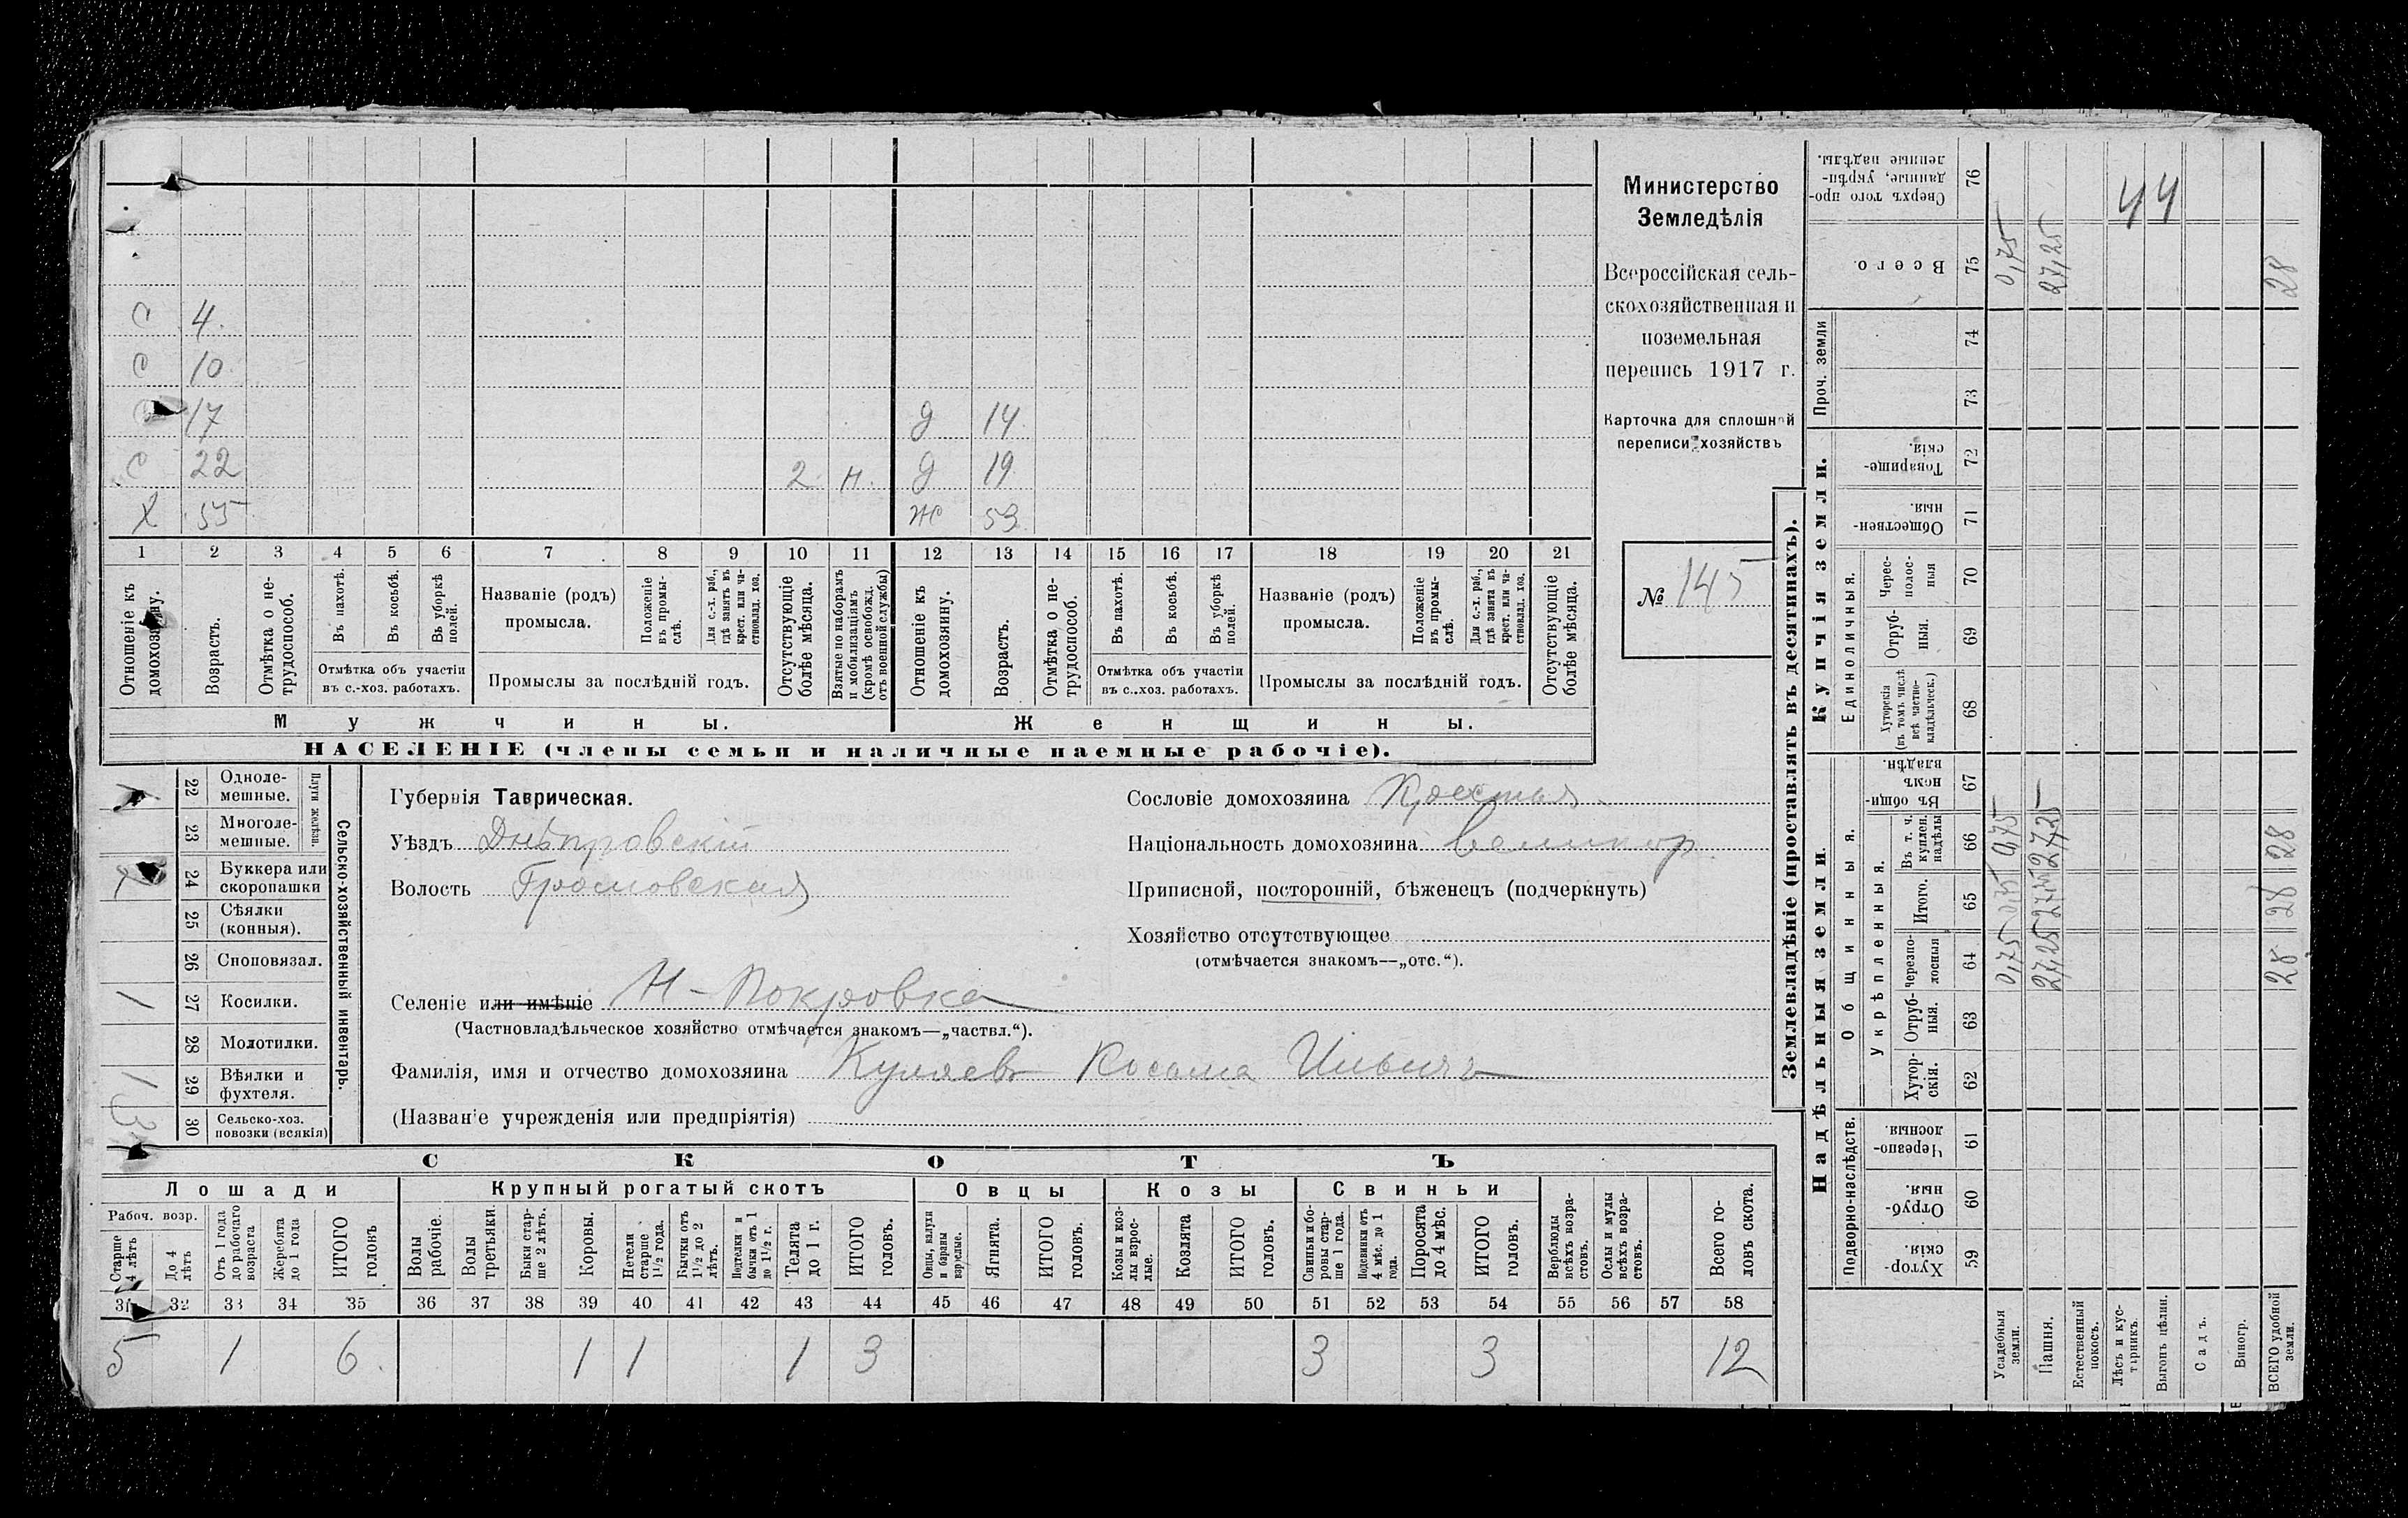 С 4.
С 10
17 д 14.
С 22 2. н. д 19
Х 55 ж 53
1 2 3 4 5 6 7 8 9 10 11 12 13 14 15 16 17 18 19 20 21
Отношеніе къ домохозяину.
Возрастъ.
Отмѣтка о не-трудоспособ.
Въ пахотѣ.
Въ косьбѣ.
Въ уборкѣ полей.
Отмѣтка объ участіи
въ с.-хоз. работахъ.
Названіе (родъ)
промысла.
Положеніе въ промы-слѣ.
Для с.-х. раб., гдѣ занятъ въ крест. или ча-стновлад. хоз.
Промыслы за послѣдній годъ.
Отсутствующіе болѣе мѣсяца.
Взятые по наборамъ и мобилизаціямъ (кромѣ освобожд. отъ военной службы)
Отношеніе къ домохозяину.
Возрастъ.
Отмѣтка о не-трудоспособ.
Въ пахотѣ.
Въ косьбѣ.
Въ уборкѣ полей.
Отмѣтка объ участіи
въ с..хоз. работахъ.
Названіе (родъ)
промысла.
Положеніе въ промы-слѣ.
Для с.-х. раб., гдѣ занята въ крест. или ча-стновлад. хоз.
Промыслы за послѣдній годъ.
Отсутствующіе болѣе мѣсяца.
Мужчины. Женщины.
НАСЕЛЕНІЕ (члены семьи и наличные наемные рабочіе).
Министерство
Земледѣлія
Всероссійская сель-
скохозяйственная и
поземельная
перепись 1917 г.
Карточка для сплошной
переписи хозяйствъ
№ 145
Сельско-хозяйственный инвентарь.
Плуги желѣзн.
22 Одноле-мешные.
23 Многоле-мешные.
24 Буккера или скоропашки
25 Сѣялки (конныя).
26 Сноповязал.
1 27 Косилки.
28 Молотилки.
1 29 Вѣялки и фухтеля.
3 30 Сельско-хоз. повозки (всякія)
Губернія Таврическая.
Уѣздъ Днѣпровскій
Волость Громовская
Селеніе или имѣніе Н-Покровка
(Частновладѣльческое хозяйство отмѣчается знакомъ—„частвл.“).
Фамилія, имя и отчество домохозяина Куляевъ Косьма Ильичъ
(Названіе учрежденія или предпріятія)
Сословіе домохозяина Крестья
Національность домохозяина великор.
Приписной, посторонній, бѣженецъ (подчеркнуть)
Хозяйство отсутствующее
(отмѣчается знакомъ—„отс.“).
СКОТЪ
Лошади Крупный рогатый скотъ Овцы Козы Свиньи
Рабоч. возр.
Старше 4 лѣтъ
До 4 лѣтъ
Отъ 1 года до рабочаго возраста
Жеребята до 1 года
ИТОГО головъ
Волы рабочіе.
Волы третьяки.
Быки стар-ше 2 лѣтъ.
Коровы.
Нетели старше 1½ года.
Бычки отъ 1½ до 2 лѣтъ.
Подтелки и бычки отъ 1 до 1½ г.
Телята до 1 г.
ИТОГО головъ.
Овцы, валухи и бараны взрослые.
Ягнята.
ИТОГО головъ.
Козы и коз-лы взрос-лые.
Козлята
ИТОГО головъ.
Свиньи и бо-ровы стар-ше 1 года.
Подсвинки отъ 4 мѣс. до 1 года.
Поросята до 4 мѣс.
ИТОГО головъ.
Верблюды всѣхъ возра-стовъ.
Ослы и мулы всѣхъ возра-стовъ.
Всего го-ловъ скота.
31 32 33 34 35 36 37 38 39 40 41 42 43 44 45 46 47 48 49 50 51 52 53 54 55 56 57 58
5 1 6. 1 1 1 3 3 3 12
Землевладѣніе (проставлять въ десятинахъ).
Надѣльныя земли. Купчія земли. Проч. земли
Подворно-наслѣдств. Общинныя. Укрѣпленныя. Единоличныя.
Сверхъ того про-данные, укрѣп-ленные надѣлы. 76 44
Всего. 75 0,75 27,25 28
74
73
Товарище-скія. 72
Обществен-ныя. 71
Черес-полос-ныя 70
Отруб-ныя. 69
Хуторскія (въ томъ числѣ всѣ частно-владѣльческ.) 68
Въ общи-номъ владѣн. 67
Въ т. ч. куплен. надѣлы 66 0,75 27,25 28
Итого. 65 0,75 27,25 28
Черезпо-лосныя 64 0,75 27,25 28
Отруб-ныя. 63
Хутор-скія. 62
Черезпо-лосныя. 61
Отруб-ныя. 60
Хутор-скія. 59
Усадебныя земли.
Пашня.
Естественный покосъ.
Лѣсъ и кус-тарникъ.
Выгонъ цѣлин.
Садъ.
Виногр.
ВСЕГО удобной земли.